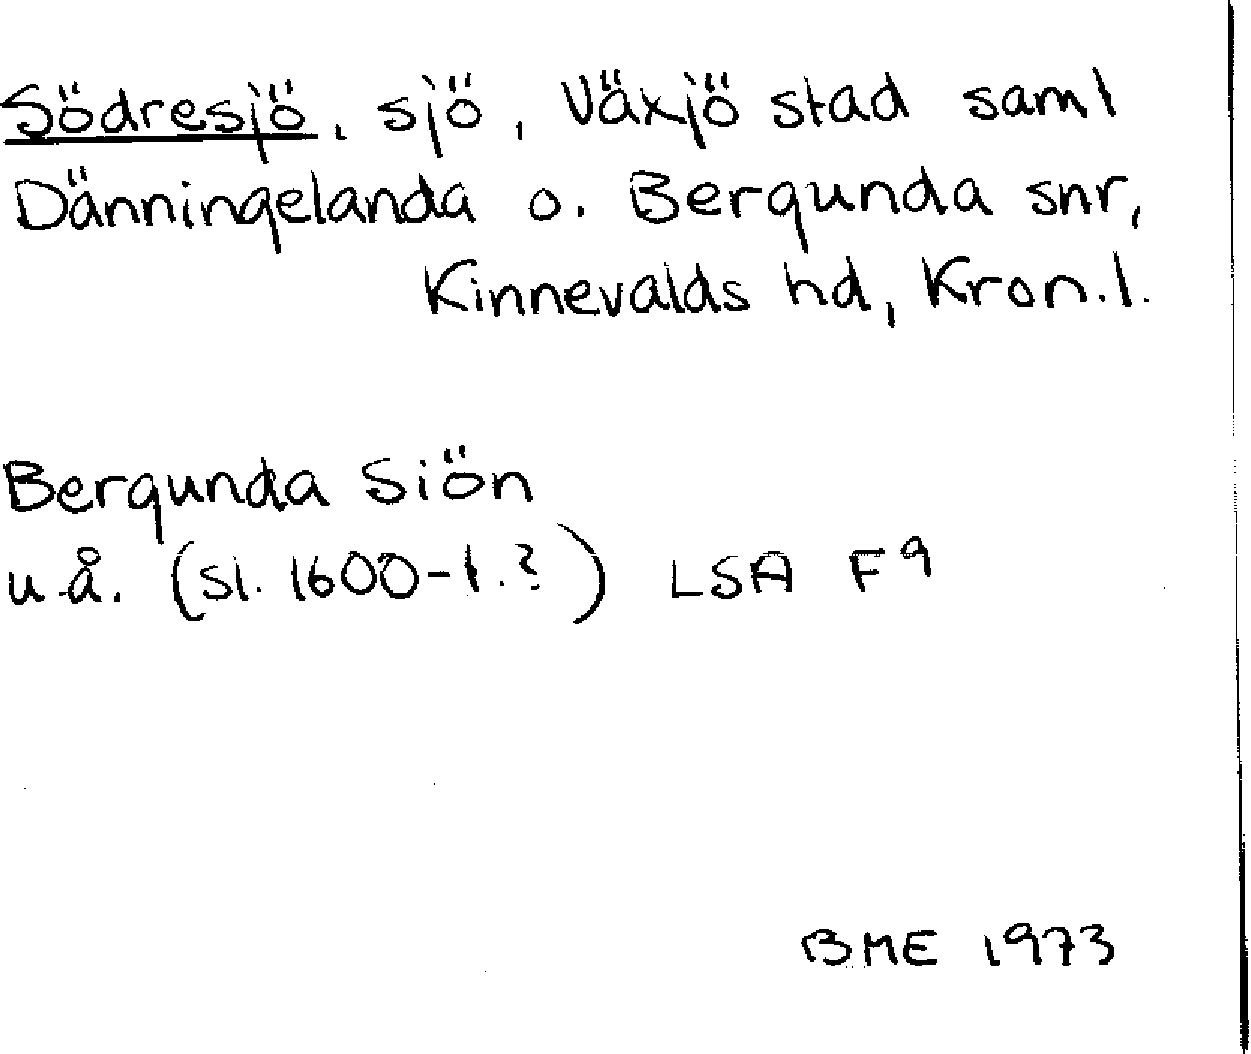 Södresjö, sjö, Växjö stad saml
Dänningelanda o. Bergunda snr,
Kinnevalds hd, Kron.l.
Bergunda Siön
u.å. (sl. 1600-t.?) LSA F9
BME 1973